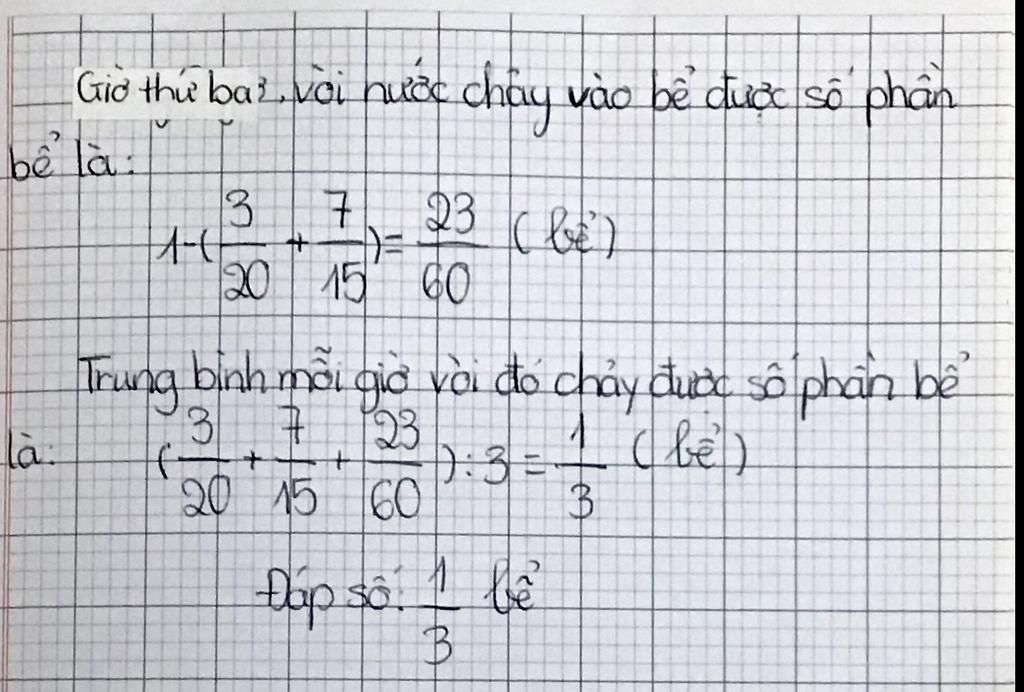 Giờ thứ ba, vòi nước chảy vào bể được số phần
bể là:
1-(3/20 + 7/15) = 23/60 (bể)
Trung bình mỗi giờ vòi đó chảy được số phần bể
là: (3/20 + 7/15 + 23/60) : 3 = 1/3 (bể)
Đáp số: 1/3 bể